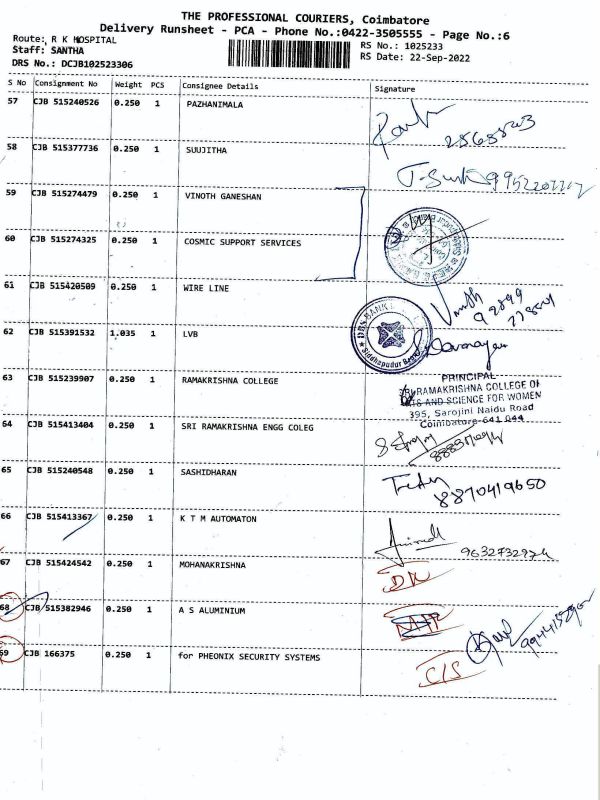 THE PROFESSIONAL COURIERS, Coimbatore
Delivery Runsheet - PCA - Phone No.:0422-3505555 - Page No.:6
Route: R K HOSPITAL
Staff: SANTHA
DRS No.: DCJB102523306
RS No.: 1025233
RS Date: 22-Sep-2022
S No Consignment No Weight PCS Consignee Details Signature
57 CJB 515240526 0.250 1 PAZHANIMALA
58 CJB 515377736 0.250 1 SUUJITHA
59 CJB 515274479 0.250 1 VINOTH GANESHAN
60 CJB 515274325 0.250 1 COSMIC SUPPORT SERVICES
61 CJB 515420509 0.250 1 WIRE LINE
62 CJB 515391532 1.035 1 LVB
DBS BANK
Siddhapudur
63 CJB 515239907 0.250 1 RAMAKRISHNA COLLEGE
PRINCIPAL
SRI RAMAKRISHNA COLLEGE OF
ARTS AND SCIENCE FOR WOMEN
395, Sarojini Naidu Road
Coimbatore-641 044
64 CJB 515413404 0.250 1 SRI RAMAKRISHNA ENGG COLEG
65 CJB 515240548 0.250 1 SASHIDHARAN
8870419650
66 CJB 515413367 0.250 1 K T M AUTOMATON
67 CJB 515424542 0.250 1 MOHANAKRISHNA
68 CJB 515382946 0.250 1 A S ALUMINIUM
69 CJB 166375 0.250 1 for PHEONIX SECURITY SYSTEMS
C/S